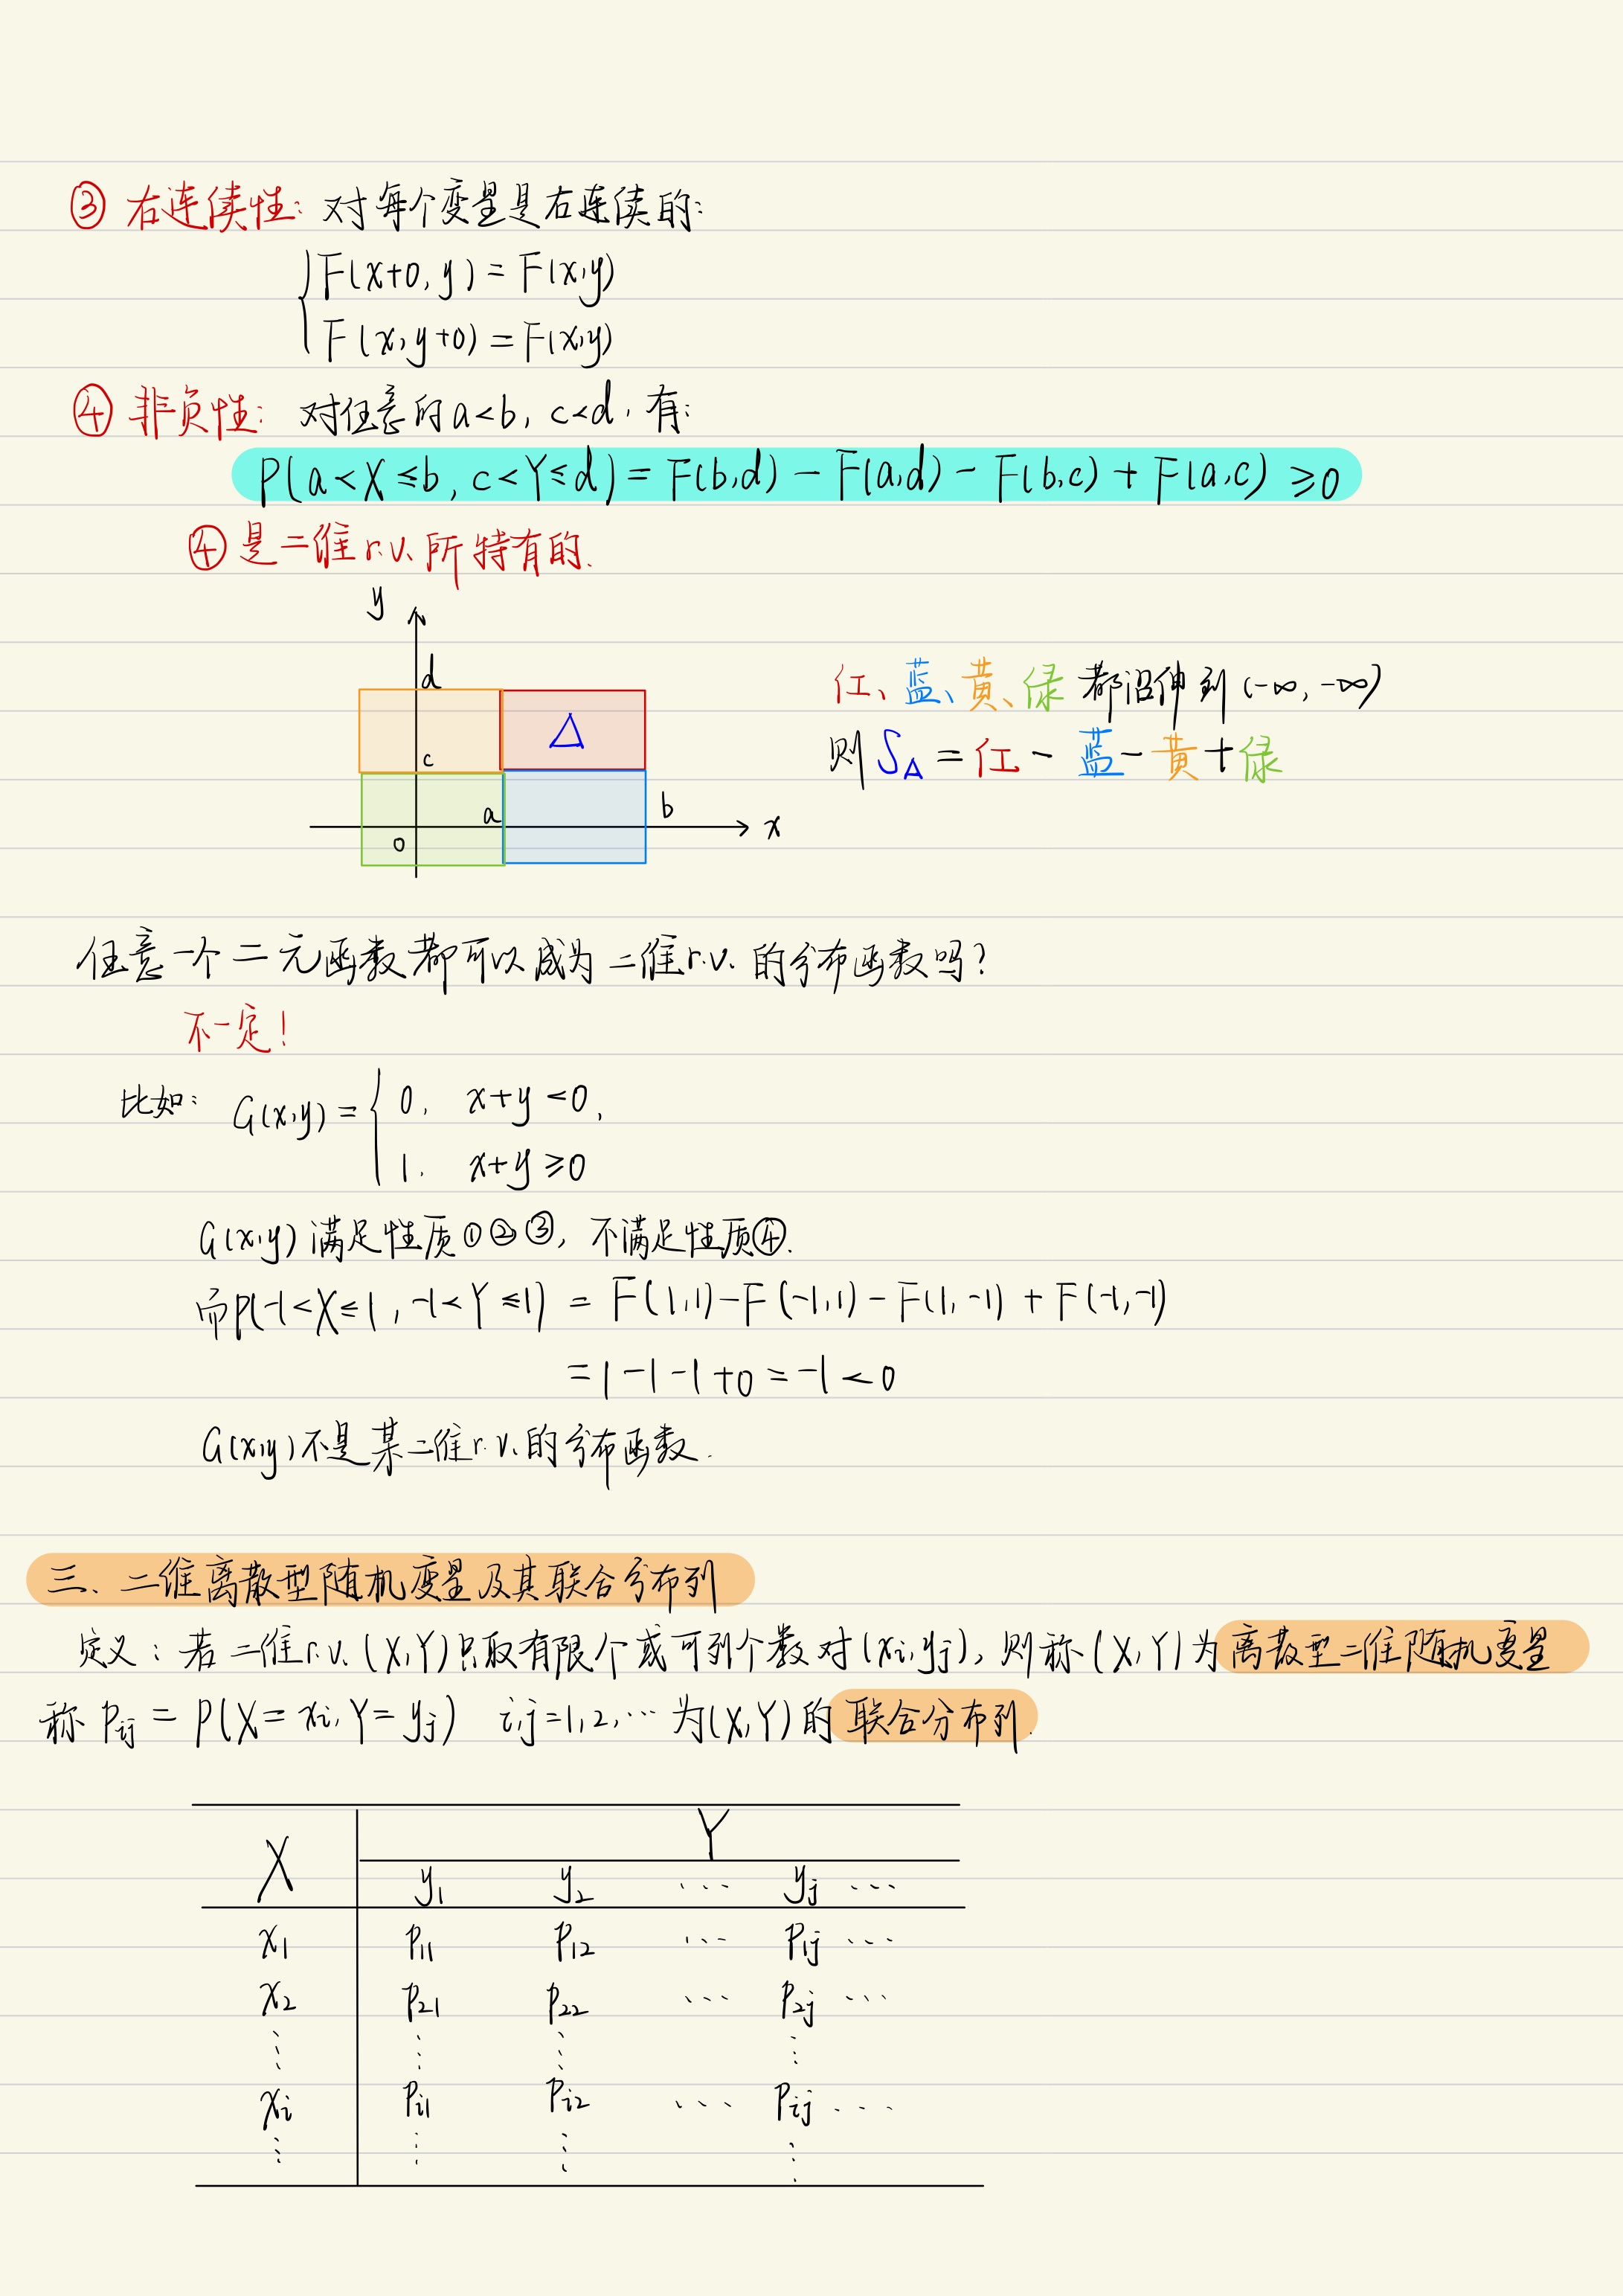 ③ 右连续性: 对每个变量是右连续的:
F(x+0, y) = F(x,y)
F(x, y+0) = F(x,y)
④ 非负性: 对任意的 a<b, c<d, 有:
P(a<X≤b, c<Y≤d) = F(b,d) - F(a,d) - F(b,c) + F(a,c) ≥0
④是二维r.v.所特有的.
y
d
Δ
c
a
b
0
x
红、蓝、黄、绿 都沿伸到 (-∞, -∞)
则 S△ = 红 - 蓝 - 黄 + 绿
任意一个二元函数都可以成为二维r.v.的分布函数吗?
不一定!
比如: G(x,y) = { 0, x+y <0,
1, x+y ≥0
G(x,y) 满足性质①②③, 不满足性质④.
而P(-1<X≤1, -1<Y≤1) = F(1,1) - F(-1,1) - F(1,-1) + F(-1,-1)
= 1 -1 -1 +0 = -1 <0
G(x,y)不是某二维r.v.的分布函数.
三、二维离散型随机变量及其联合分布列
定义: 若二维r.v. (X,Y)只取有限个或可列个数对(xi,yj), 则称(X,Y)为离散型二维随机变量
称 Pij = P(X=xi, Y=yj) i,j=1,2,… 为(X,Y)的联合分布列.
X Y
y1 y2 … yj …
x1 P11 P12 … P1j …
x2 P21 P22 … P2j …
⋮ ⋮ ⋮ ⋮
xi Pi1 Pi2 … Pij …
⋮ ⋮ ⋮ ⋮